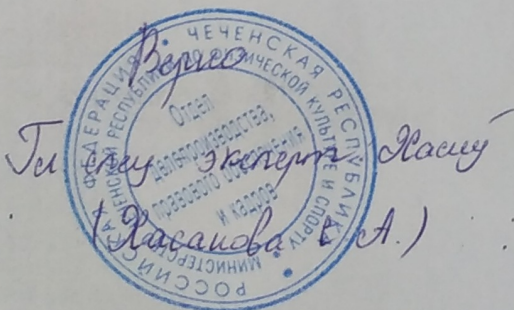 Верно
РОССИЙСКАЯ ФЕДЕРАЦИЯ * ЧЕЧЕНСКАЯ РЕСПУБЛИКА
МИНИСТЕРСТВО ЧЕЧЕНСКОЙ РЕСПУБЛИКИ ПО ФИЗИЧЕСКОЙ КУЛЬТУРЕ И СПОРТУ *
Отдел
делопроизводства,
правового обеспечения
и кадров
Гл спец эксперт
(Хасанова А.)